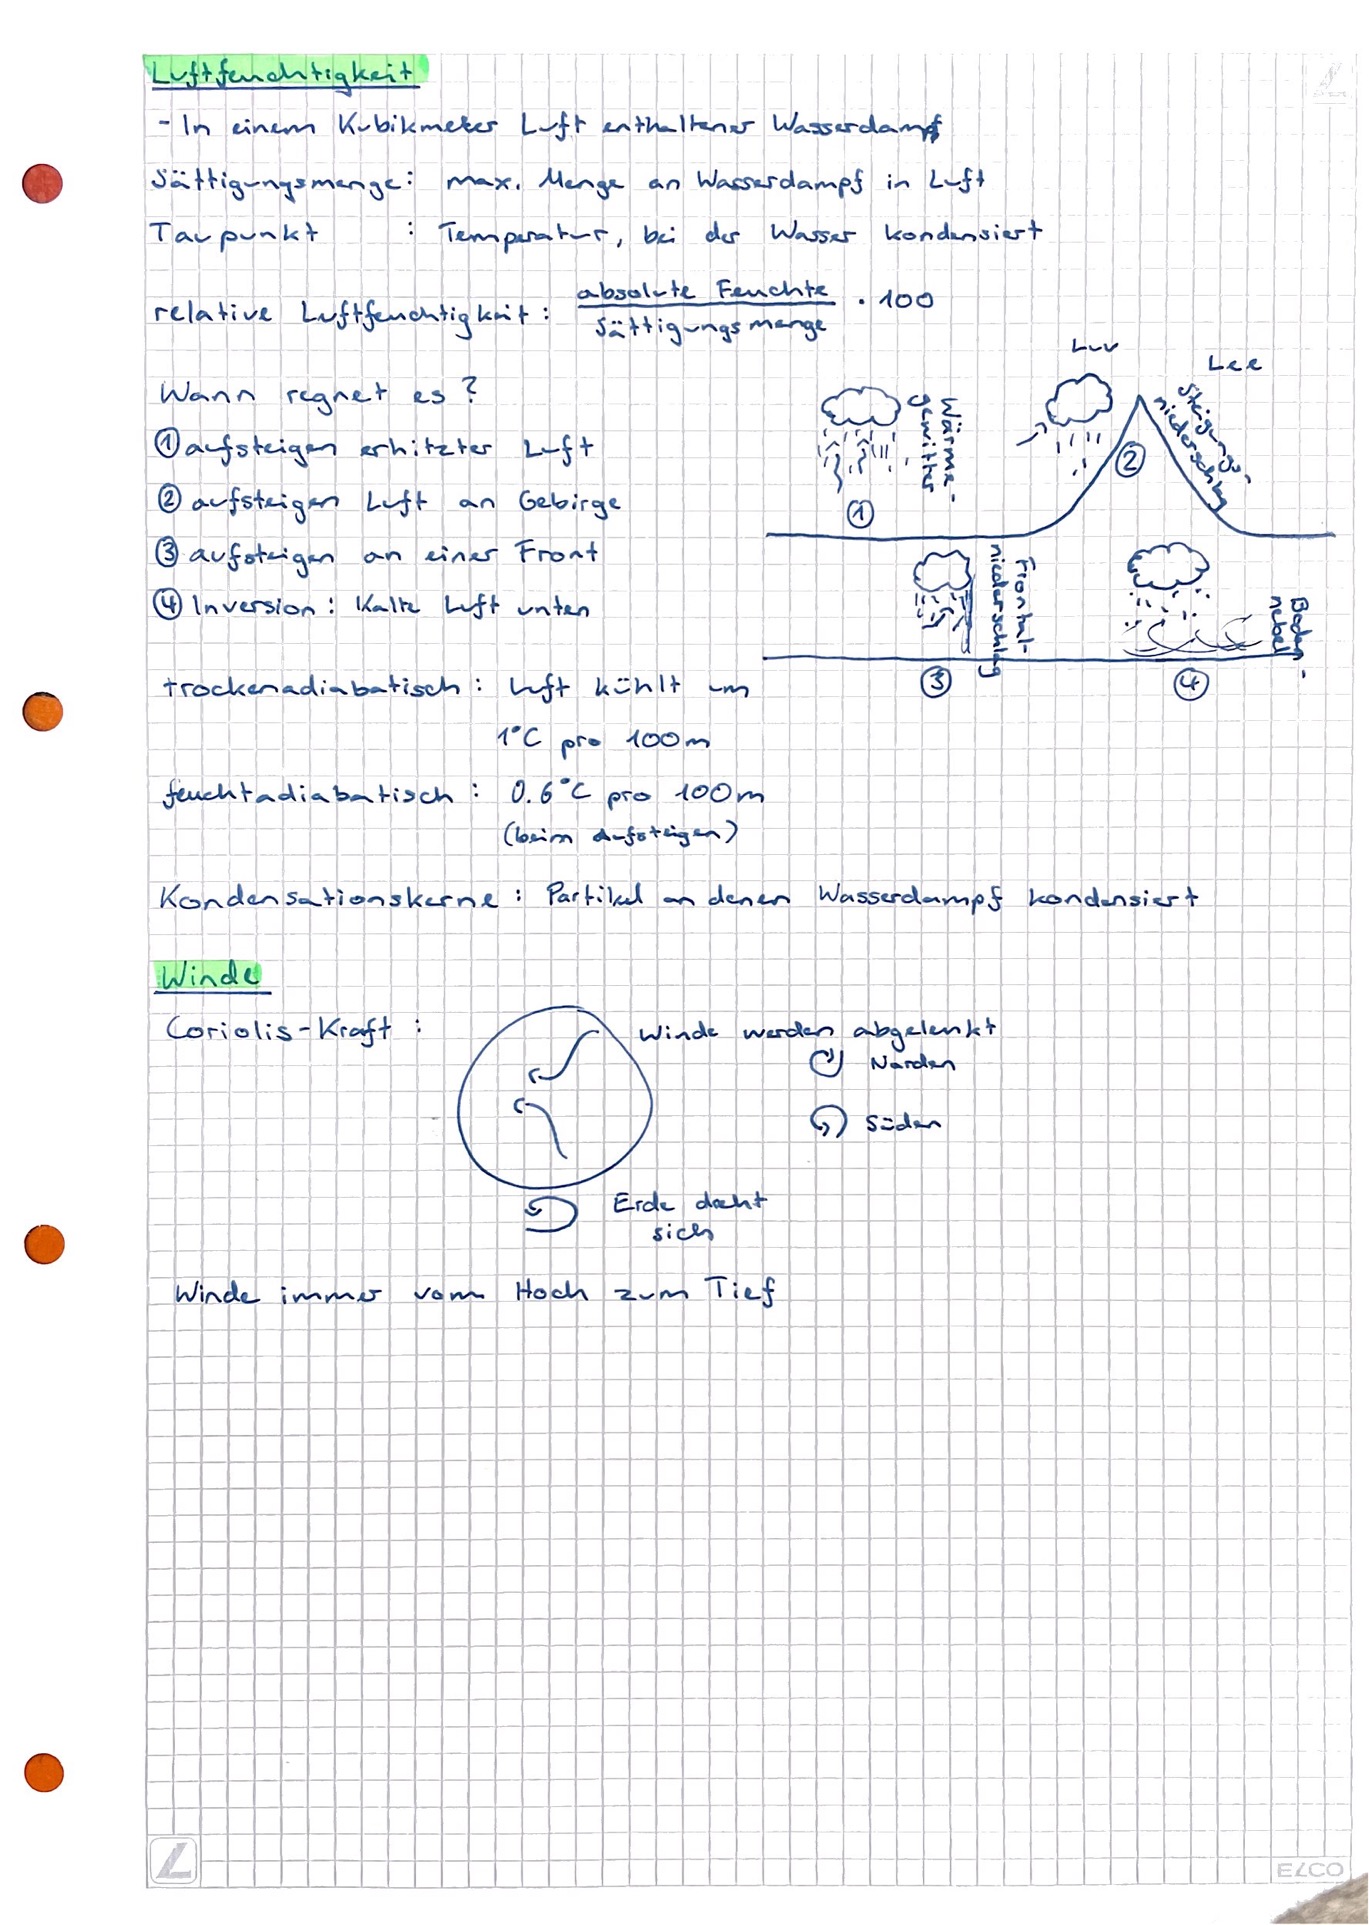 Luftfeuchtigkeit
- In einem Kubikmeter Luft enthaltener Wasserdampf
Sättigungsmenge: max. Menge an Wasserdampf in Luft
Taupunkt : Temperatur, bei der Wasser kondensiert
relative Luftfeuchtigkeit: absolute Feuchte / Sättigungsmenge · 100
Wann regnet es?
① aufsteigen erhitzter Luft
② aufsteigen Luft an Gebirge
③ aufsteigen an einer Front
④ Inversion: Kalte Luft unten
Luv
Lee
Wärme-
gewitter
①
Steigungs-
niederschlag
②
Frontal-
niederschlag
③
Boden-
nebel
④
trockenadiabatisch: Luft kühlt um
1°C pro 100m
feuchtadiabatisch: 0.6°C pro 100m
(beim Aufsteigen)
Kondensationskerne: Partikel an denen Wasserdampf kondensiert
Winde
Coriolis-Kraft:
Winde werden abgelenkt
Norden
Süden
Erde dreht
sich
Winde immer vom Hoch zum Tief
L
ELCO